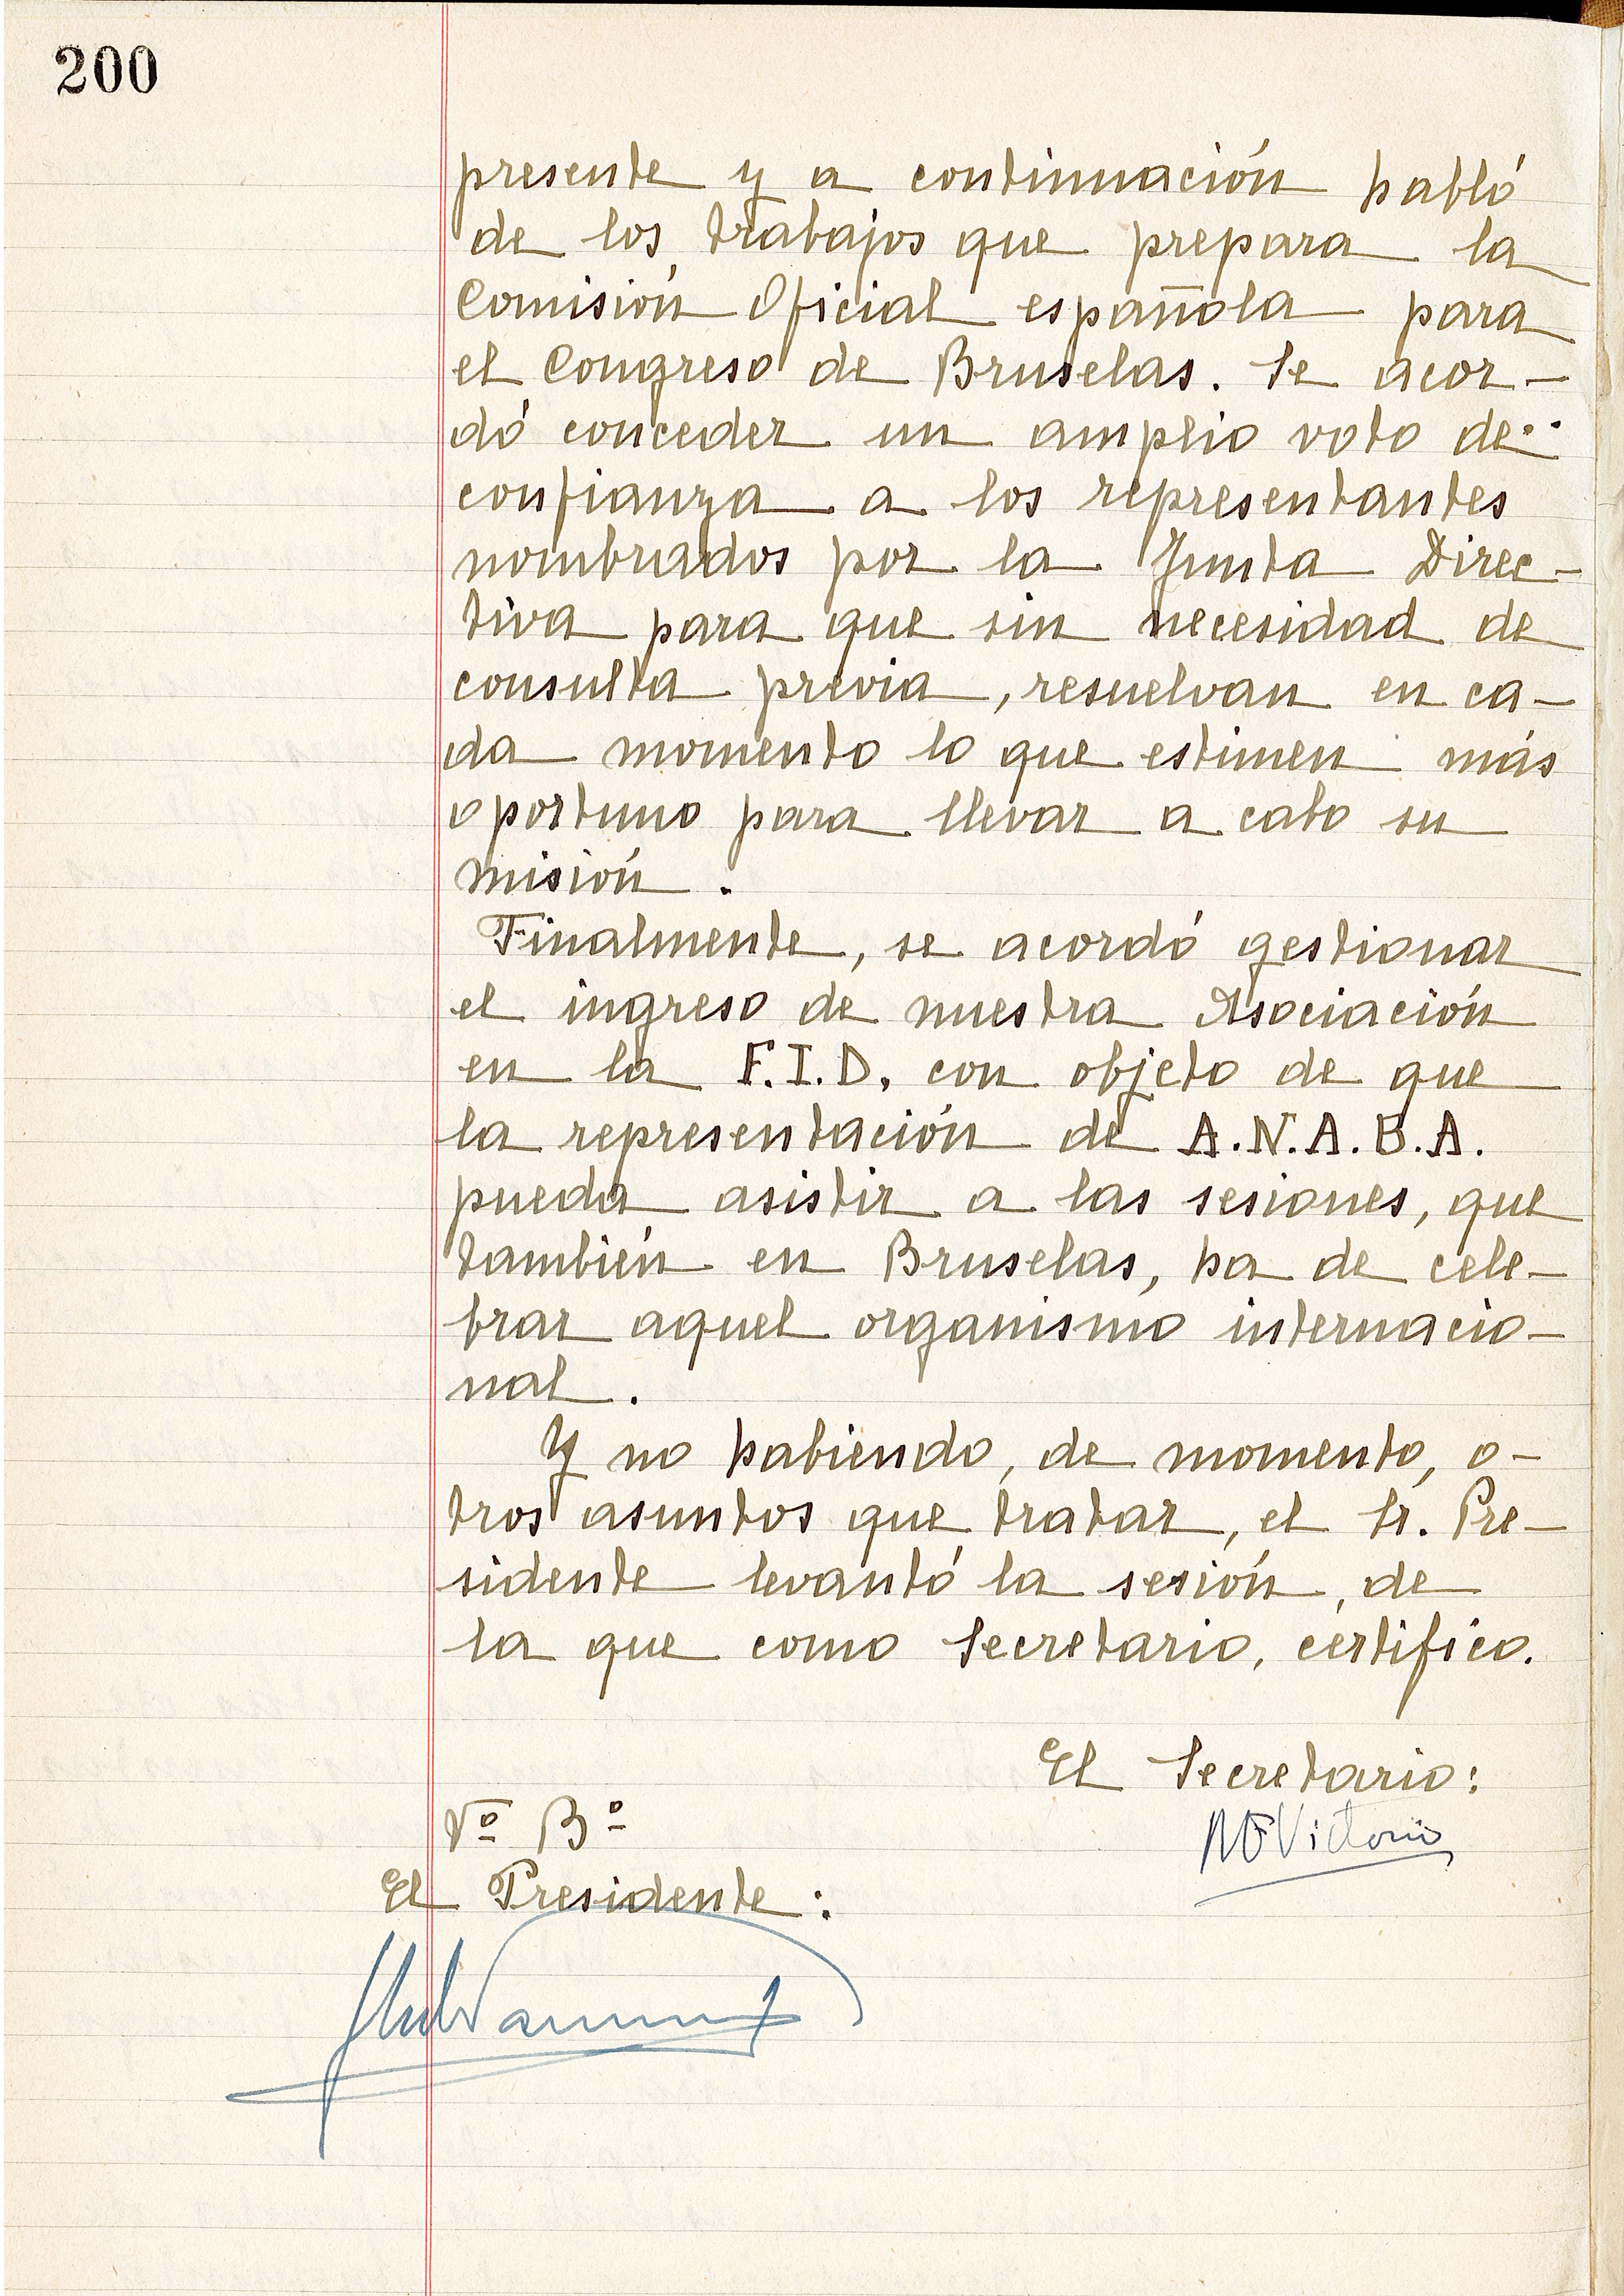 200
presente y a continuación habló
de los trabajos que prepara la
Comisión Oficial española para
el Congreso de Bruselas. Se acor-
dó conceder un amplio voto de
confianza a los representantes
nombrados por la Junta Direc-
tiva para que sin necesidad de
consulta previa, resuelvan en ca-
da momento lo que estimen más
oportuno para llevar a cabo su
misión.
Finalmente, se acordó gestionar
el ingreso de nuestra Asociación
en la F.I.D. con objeto de que
la representación de A.N.A.B.A.
pueda asistir a las sesiones, que
también en Bruselas, ha de cele-
brar aquel organismo internacio-
nal.
Y no habiendo, de momento, o-
tros asuntos que tratar, el Sr. Pre-
sidente levantó la sesión, de
la que como Secretario, certifico.
El Secretario:
Vº Bº
El Presidente: